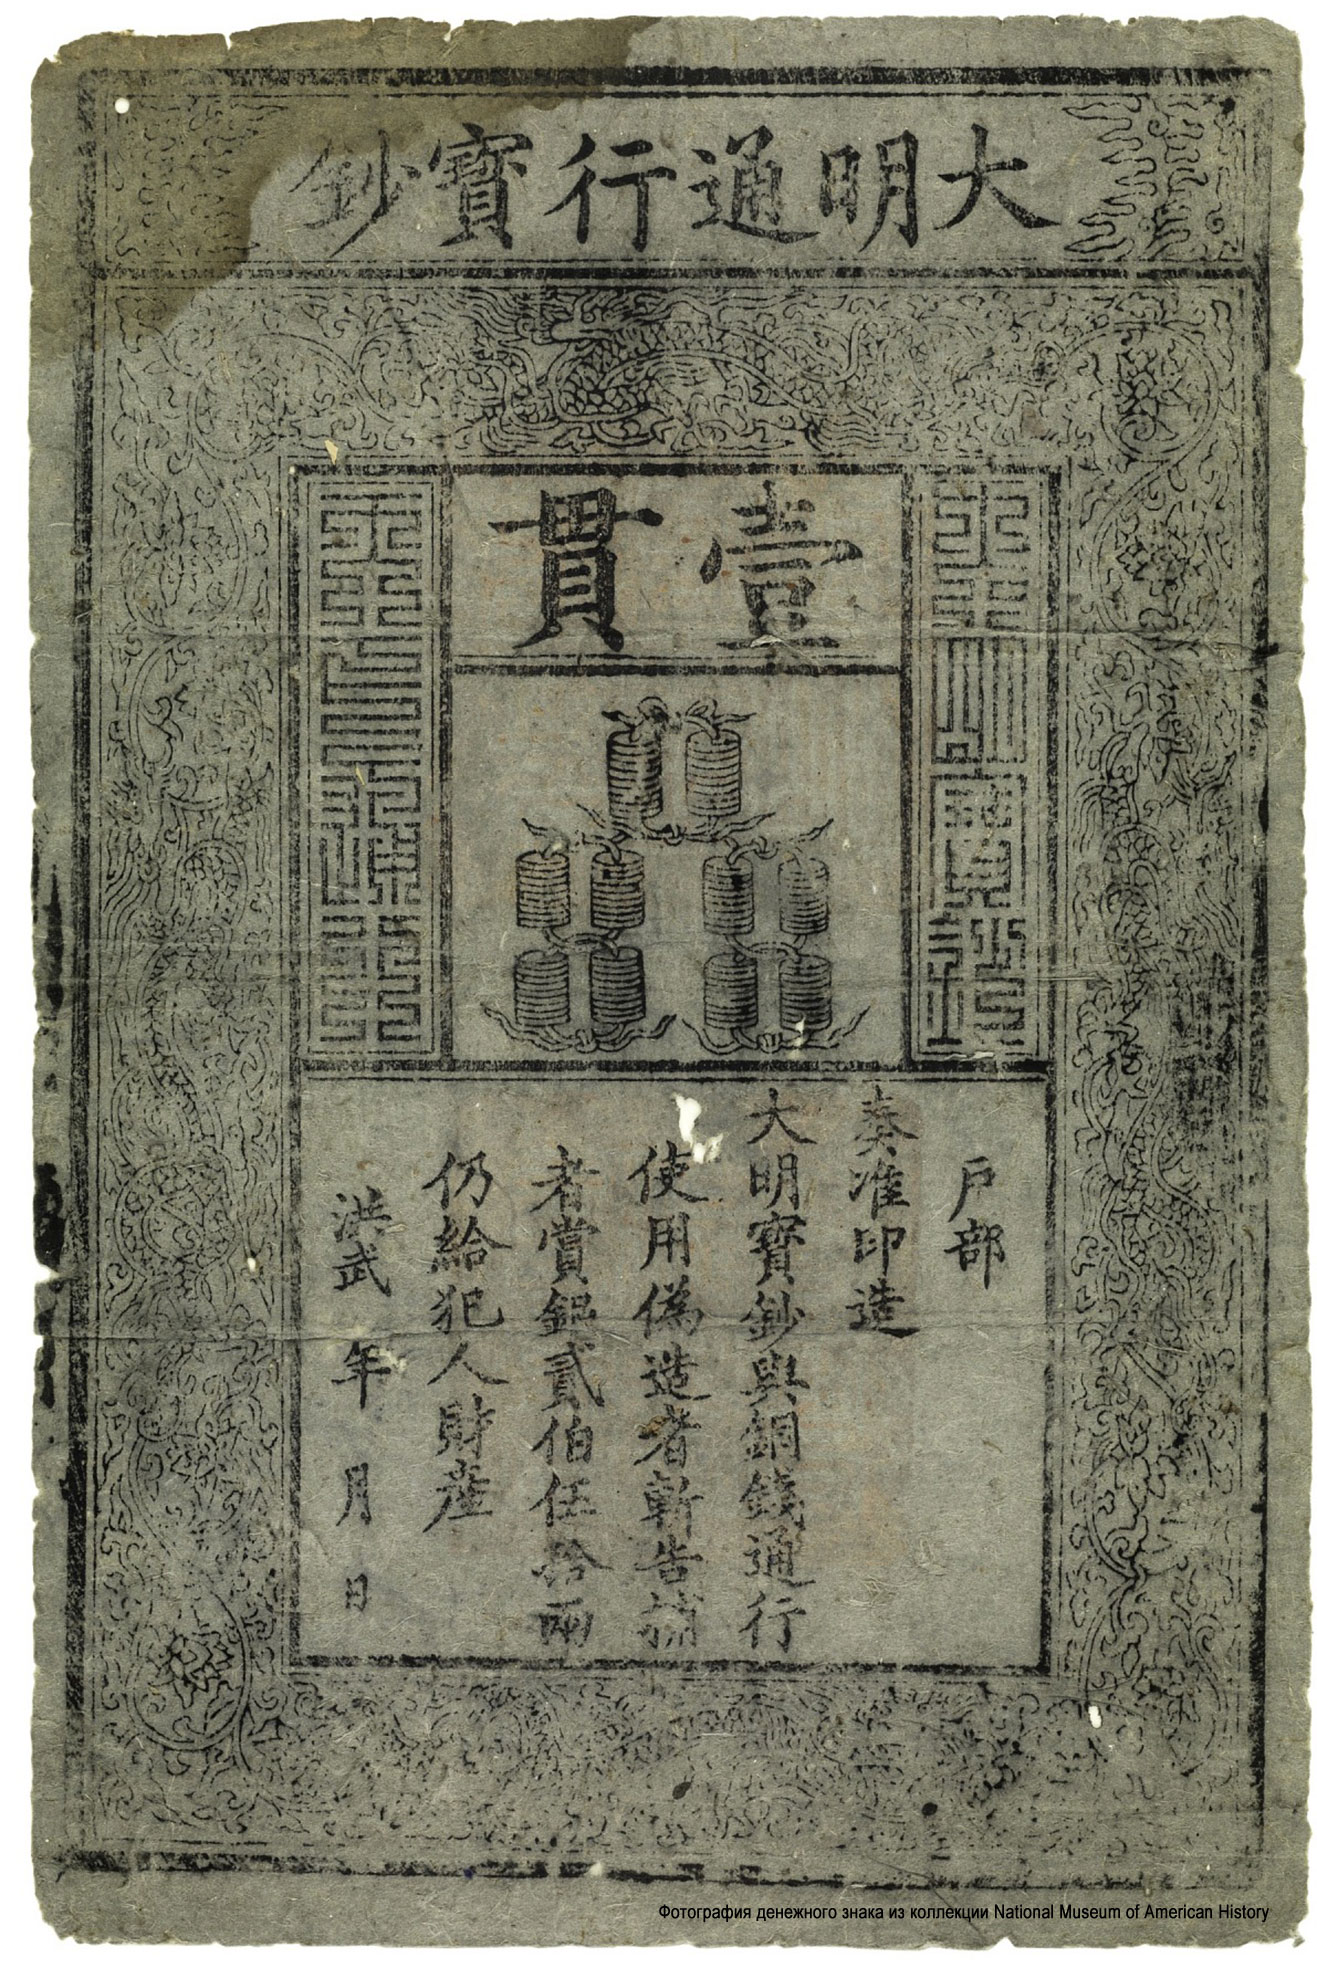 大明通行寶鈔
壹貫
大明寶鈔
天下通行
戶部
奏准印造
大明寶鈔與銅錢通行
使用偽造者斬告捕
者賞銀貳伯伍拾兩
仍給犯人財産
洪武 年 月 日
Фотография денежного знака из коллекции National Museum of American History